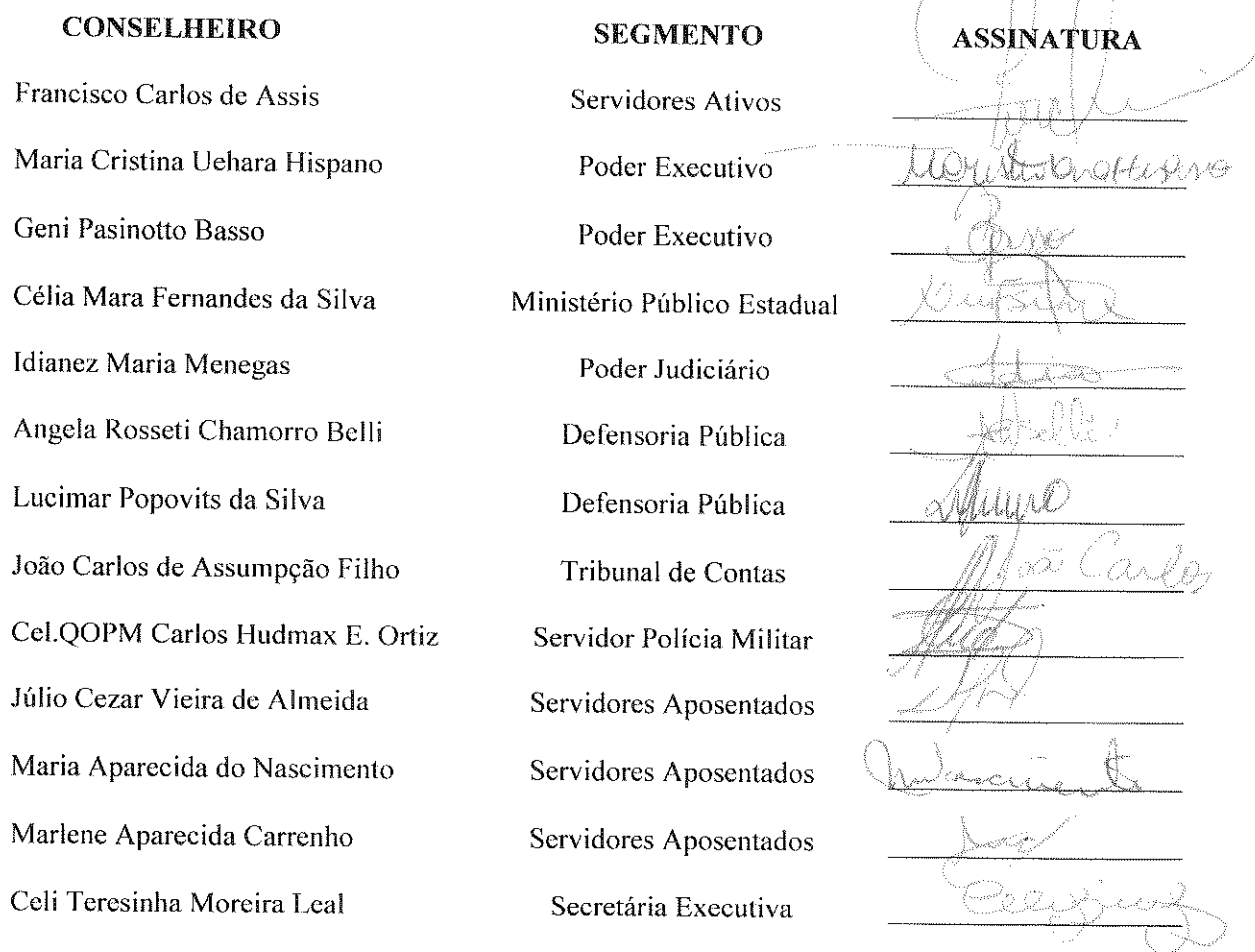 CONSELHEIRO SEGMENTO ASSINATURA
Francisco Carlos de Assis Servidores Ativos
Maria Cristina Uehara Hispano Poder Executivo
Geni Pasinotto Basso Poder Executivo Basso
Célia Mara Fernandes da Silva Ministério Público Estadual
Idianez Maria Menegas Poder Judiciário
Angela Rosseti Chamorro Belli Defensoria Pública
Lucimar Popovits da Silva Defensoria Pública
João Carlos de Assumpção Filho Tribunal de Contas João Carlos
Cel.QOPM Carlos Hudmax E. Ortiz Servidor Polícia Militar
Júlio Cezar Vieira de Almeida Servidores Aposentados
Maria Aparecida do Nascimento Servidores Aposentados Nascimento
Marlene Aparecida Carrenho Servidores Aposentados
Celi Teresinha Moreira Leal Secretária Executiva